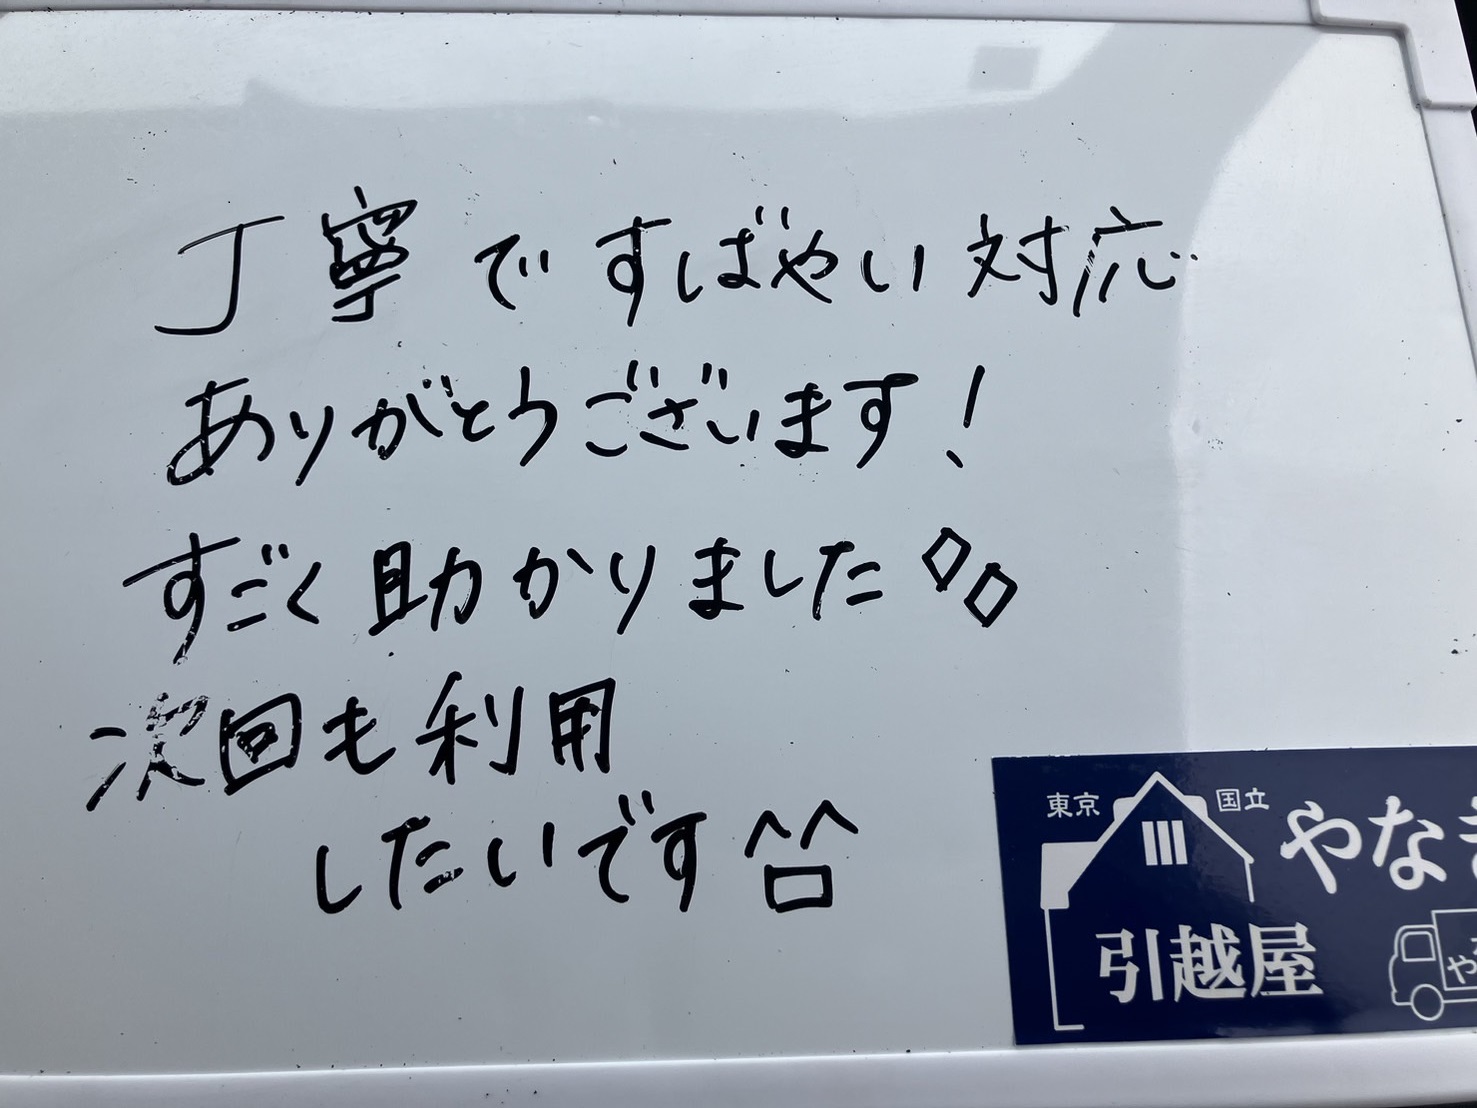 丁寧ですばやい対応
ありがとうございます!
すごく助かりました
次回も利用
したいです ^口^
東京 国立
やなぎ
引越屋
や